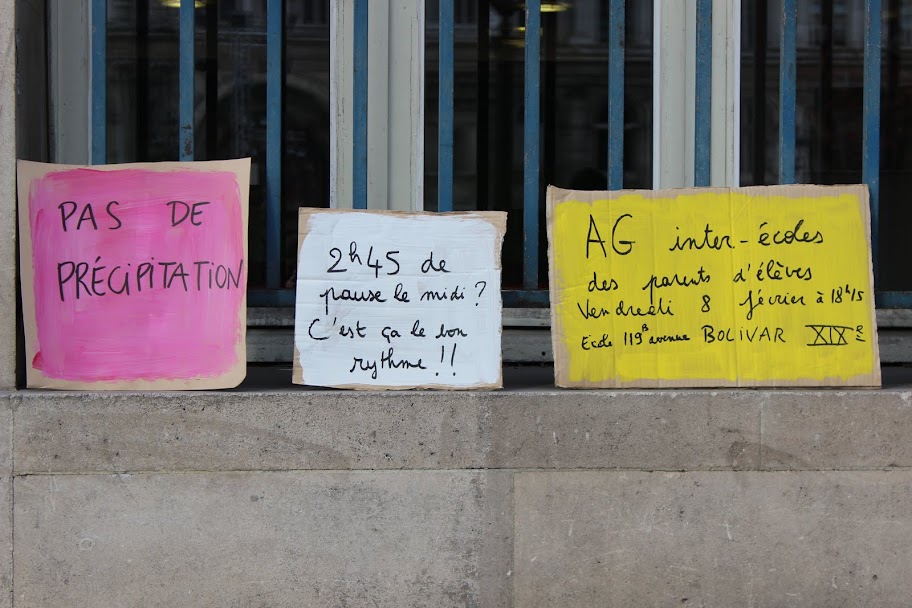 PAS DE
PRÉCIPITATION
2h45 de
pause le midi ?
C'est ça le bon
rythme !!
AG inter-écoles
des parents d'élèves
Vendredi 8 février à 18h15
Ecole 119B avenue BOLIVAR XIXe